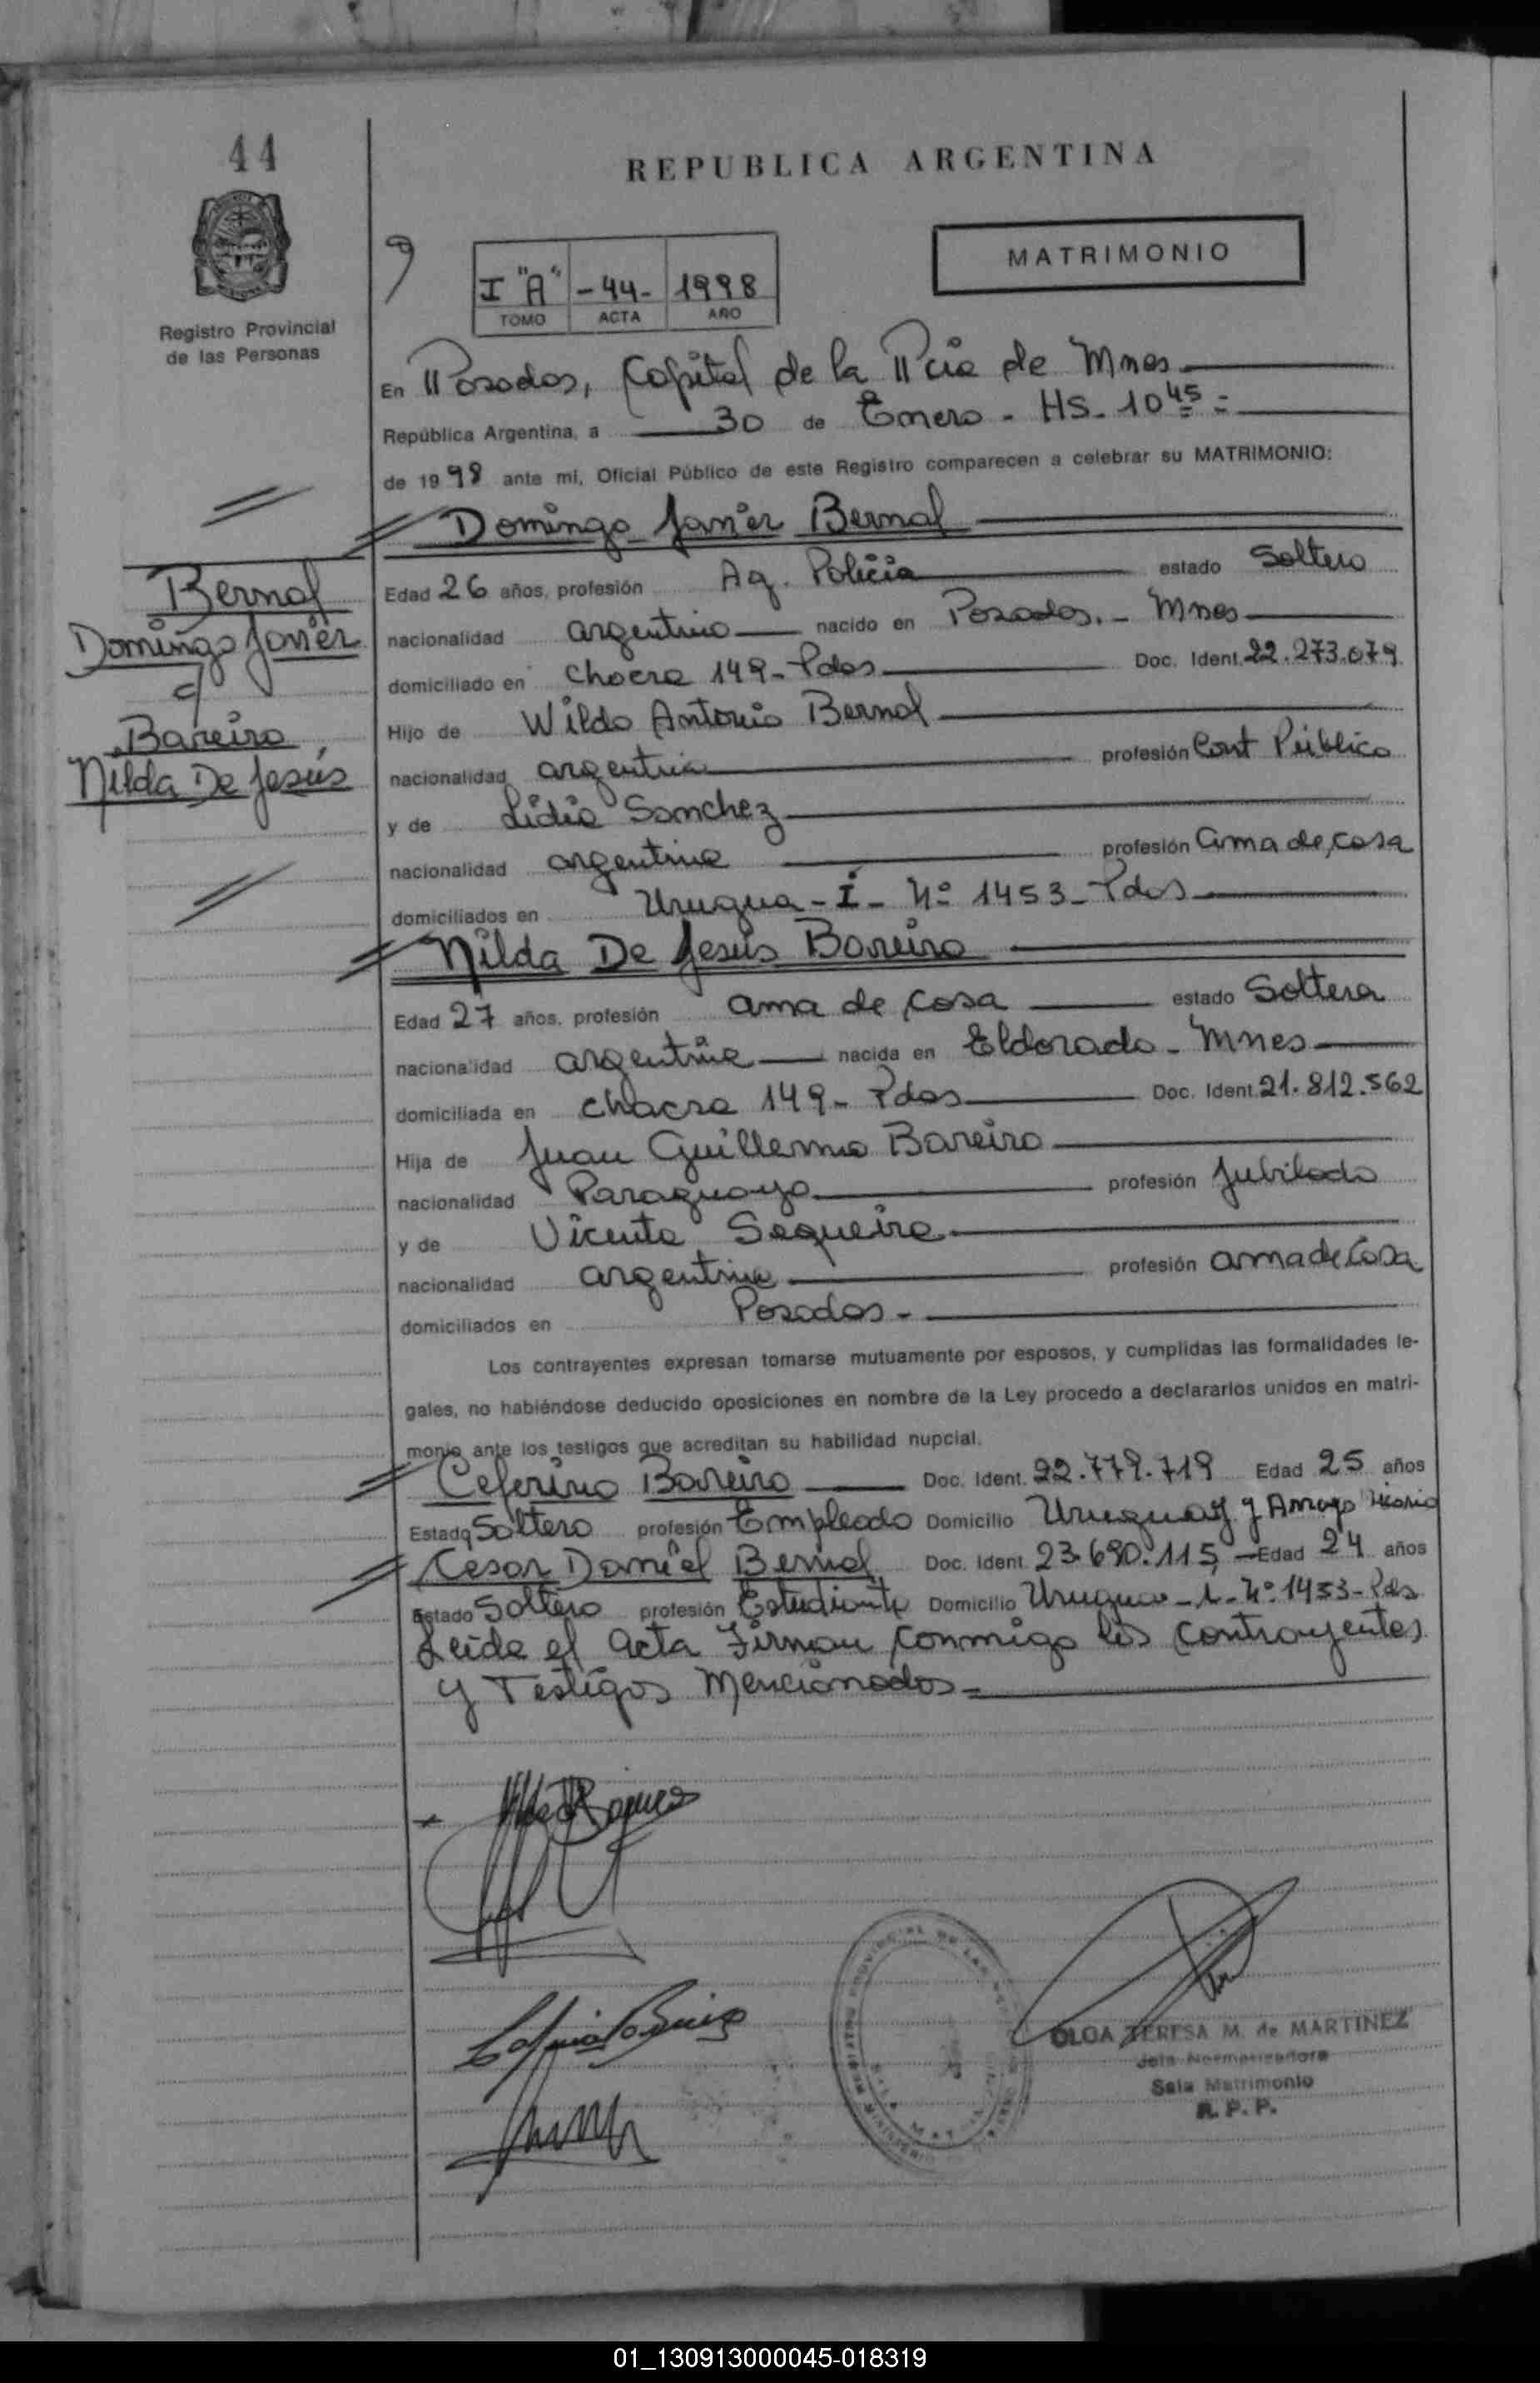 44
REPUBLICA ARGENTINA
Registro Provincial
de las Personas
9
I "A" -44- 1998
TOMO ACTA AÑO
MATRIMONIO
En Posadas, Capital de la Pcia de Mnes
República Argentina, a 30 de Enero - HS. 10 45 =
de 1998 ante mi, Oficial Público de este Registro comparecen a celebrar su MATRIMONIO:
Domingo Javier Bernal
Bernal
Domingo Javier
c/
Bareiro,
Nilda De Jesús
Edad 26 años, profesión Ag. Policia estado Soltero
nacionalidad argentino nacido en Posadas. - Mnes
domiciliado en Chacra 149 - Pdas Doc. Ident. 22.273.079
Hijo de Wildo Antonio Bernal
nacionalidad argentina profesión Cont Público
y de Lidia Sanchez
nacionalidad argentina profesión ama de casa
domiciliados en Urugua - I - Nº 1453 - Pdas
Nilda De Jesús Bareiro
Edad 27 años, profesión ama de casa estado Soltera
nacionalidad argentina nacida en Eldorado - Mnes
domiciliada en chacra 149 - Pdas Doc. Ident. 21.812.562
Hija de Juan Guillermo Bareiro
nacionalidad Paraguaya profesión Jubilado
y de Vicenta Sequeira
nacionalidad argentina profesión ama de Casa
domiciliados en Posadas -
Los contrayentes expresan tomarse mutuamente por esposos, y cumplidas las formalidades le-
gales, no habiéndose deducido oposiciones en nombre de la Ley procedo a declararlos unidos en matri-
monio ante los testigos que acreditan su habilidad nupcial.
Ceferino Bareiro Doc. Ident. 22.779.719 Edad 25 años
Estado Soltero profesión Empleado Domicilio Uruguay y Arroyo
Cesar Daniel Bernal Doc. Ident. 23.690.115 Edad 24 años
Estado Soltero profesión Estudiante Domicilio Urugua - I - Nº 1453 - Pdas
Leida el acta Firman conmigo los contrayentes
y Testigos Mencionados =
OLGA TERESA M. de MARTINEZ
Jefa Normatizadora
Sala Matrimonio
R. P. P.
01_130913000045-018319